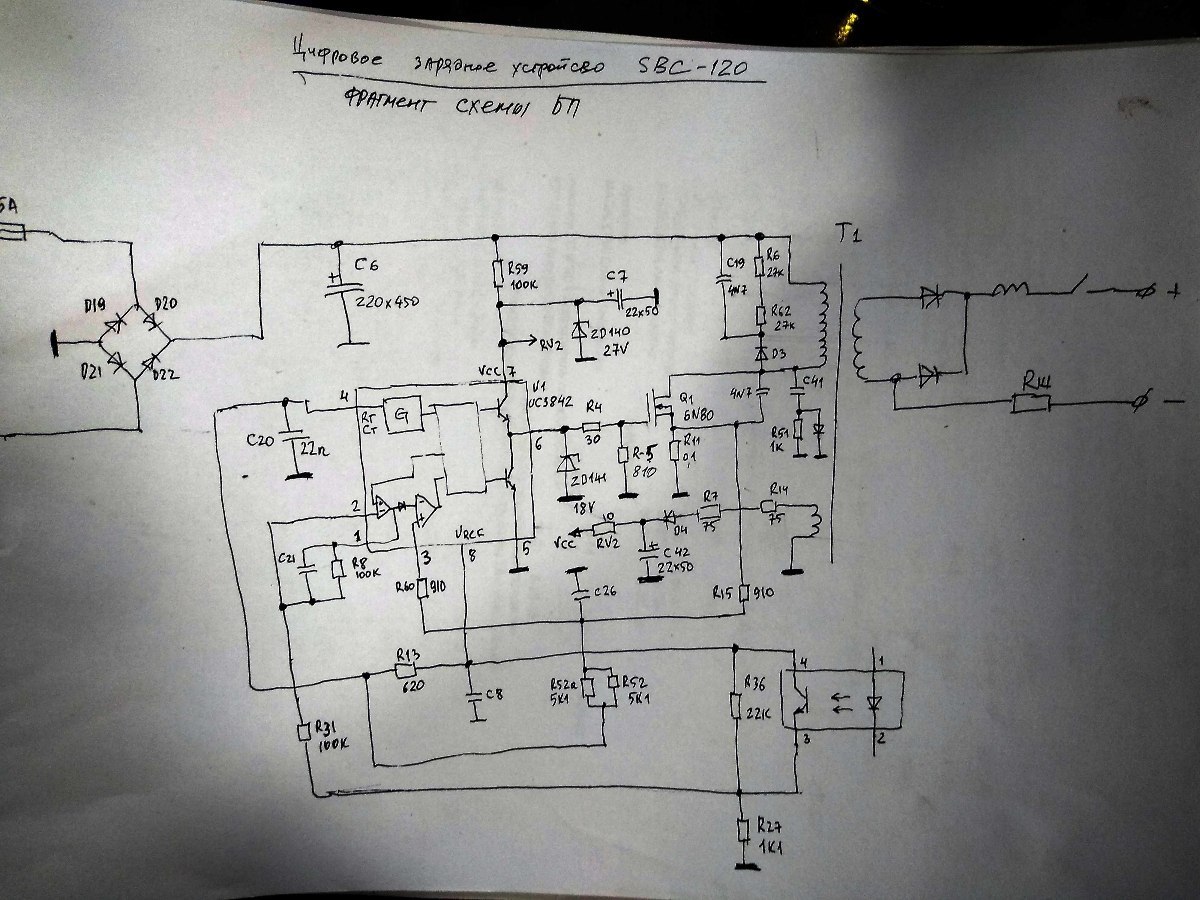 Цифровое зарядное устройство SBC-120
ФРАГМЕНТ СХЕМЫ БП
5A
T1
D19
D20
D21
D22
+
C6
220x450
R59
100K
C7
+
22x50
2D140
27V
RV2
C19
4N7
R6
27K
R62
27K
D3
+
VCC 7
V1
UC3842
4
RT
CT
G
C20
22n
6
R4
30
2D141
18V
R-5
810
Q1
6N80
4N7
R11
0,1
C41
R51
1K
R14
75
R7
75
D4
10
RV2
VCC
+
C42
22x50
2
1
C21
R8
100K
3
R60
910
VREF
8
5
C26
R15
910
RШ
—
R13
620
C8
R52a
5K1
R52
5K1
R36
22K
4
1
3
2
R31
100K
R27
1K1